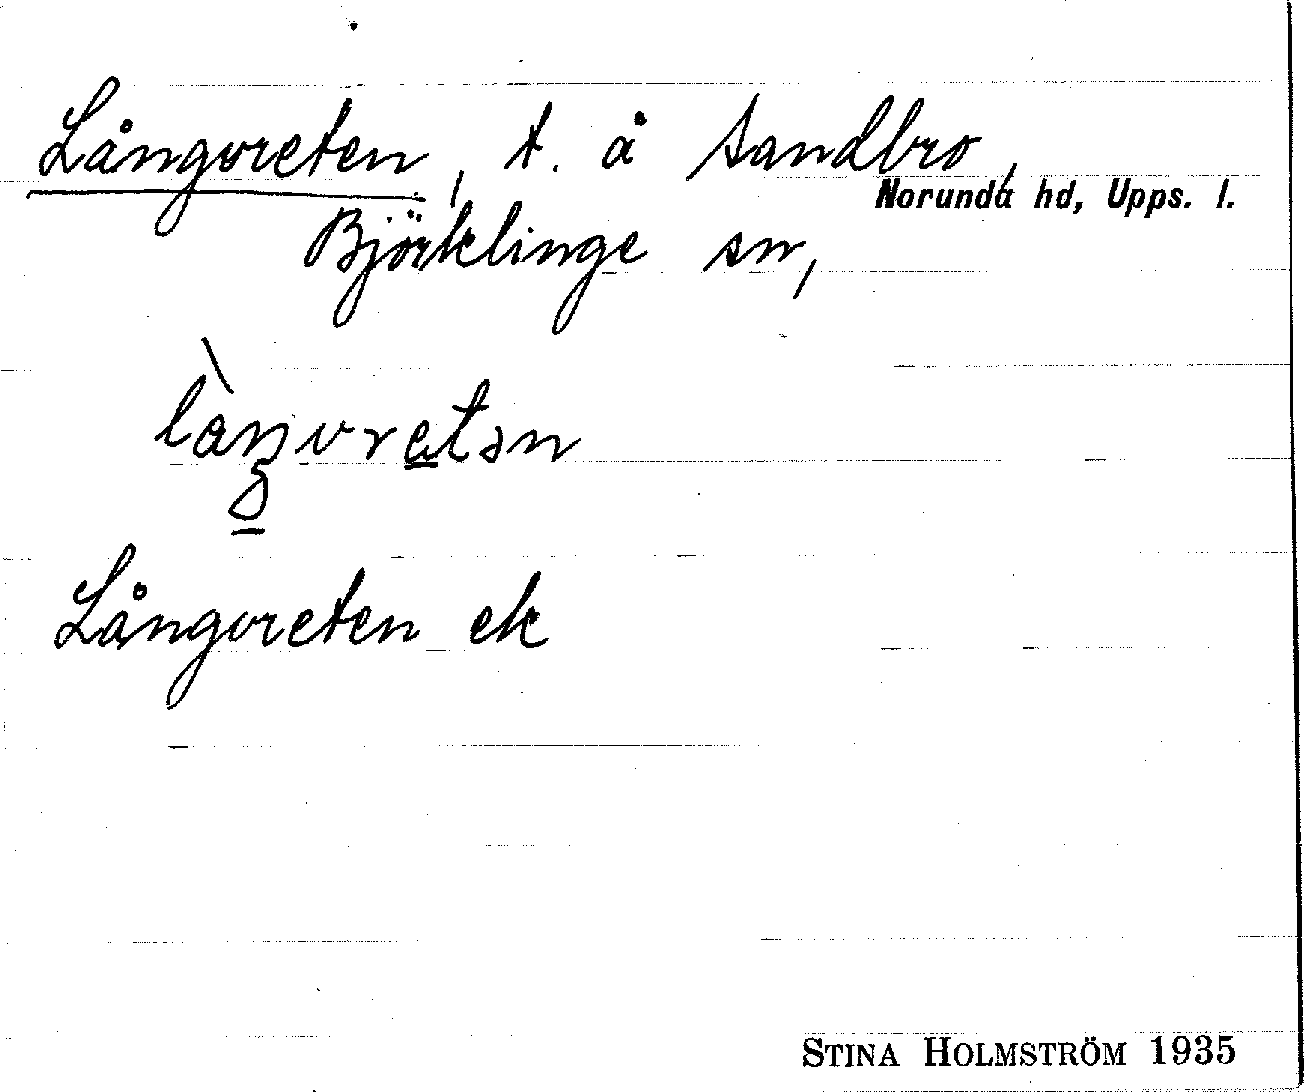 Långvreten, t. å Sandbro,
Norunda hd, Upps. l.
Björklinge sn,
Långvreten ek
STINA HOLMSTRÖM 1935